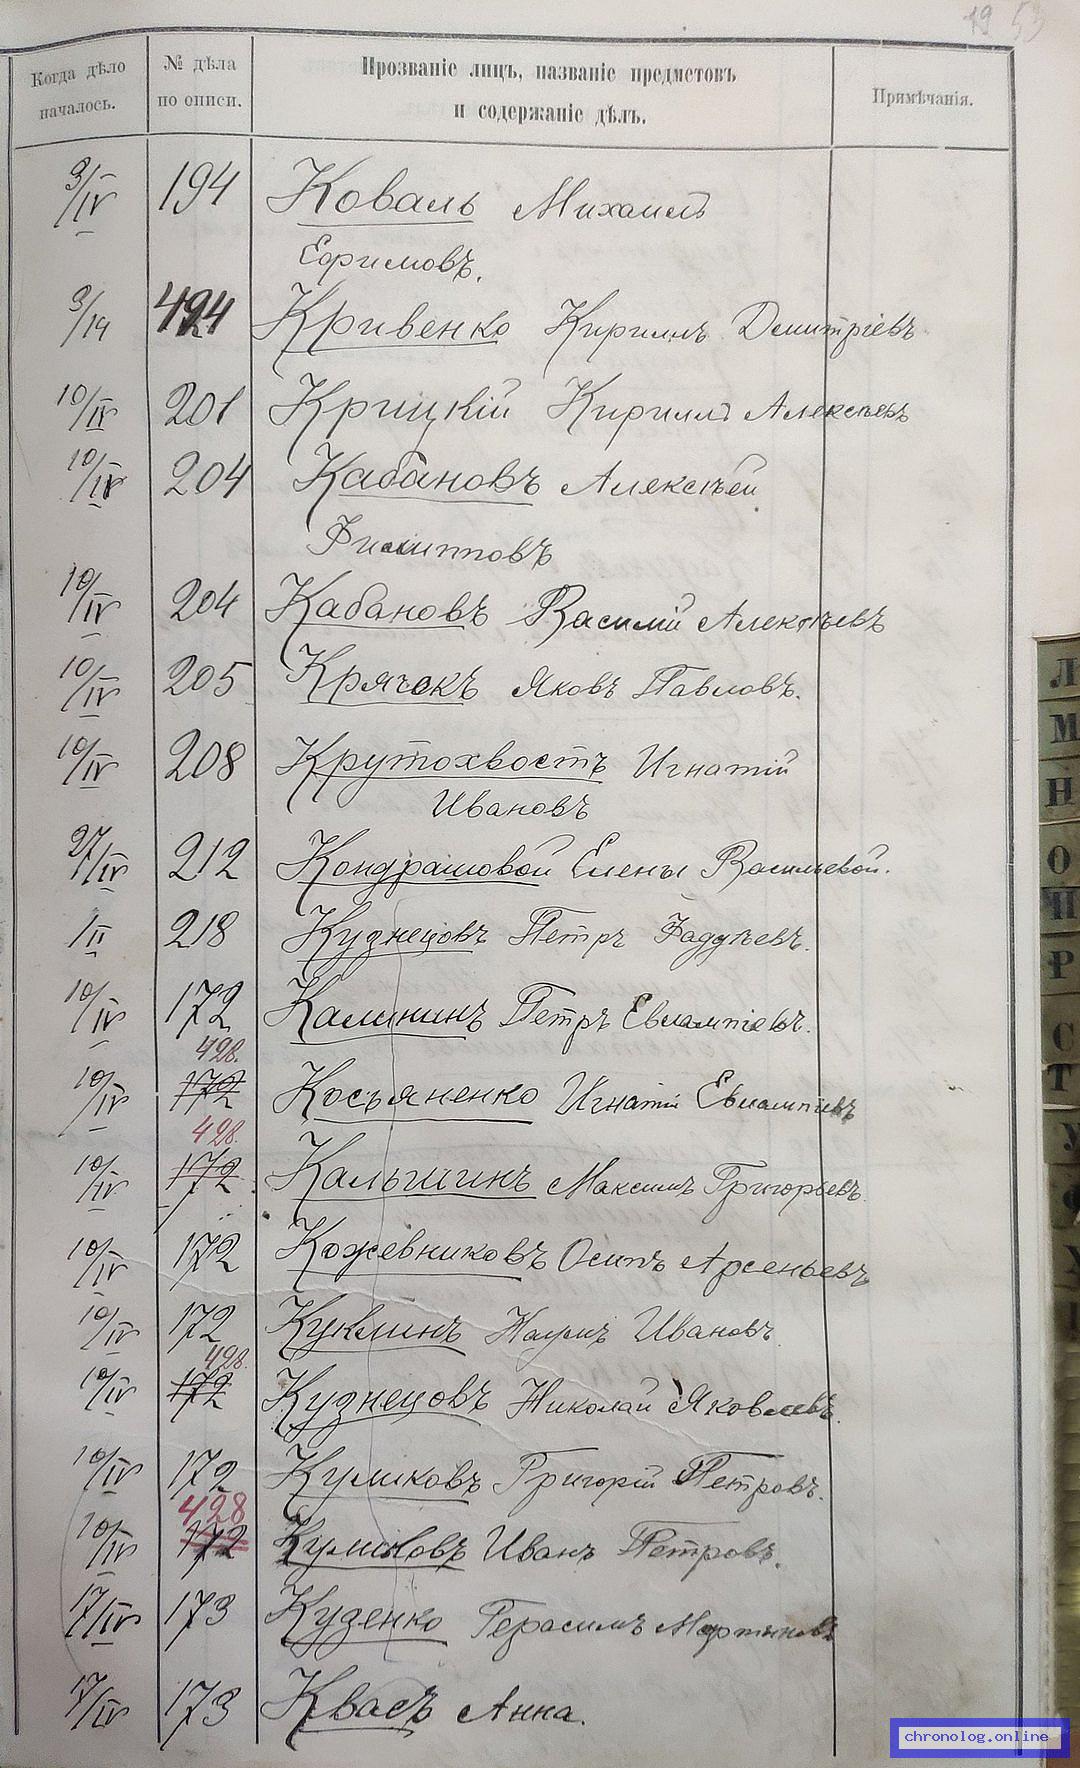 19 53
Когда дѣло началось.
№ дѣла по описи.
Прозваніе лицъ, названіе предметовъ и содержаніе дѣлъ.
Примѣчанія.
9/IV 194 Коваль Михаилъ
Ефимовъ.
9/IV 424 Кривенко Кириллъ Дмитріевъ
10/IV 201 Крицкій Кириллъ Алексѣевъ
10/IV 204 Кабановъ Алексѣй
Филипповъ
10/IV 204 Кабановъ Василій Алексѣевъ
10/IV 205 Крячокъ Яковъ Павловъ.
10/IV 208 Крутохвостъ Игнатій
Ивановъ
27/IV 212 Кондрашовой Елены Васильевой.
1/II 218 Кузнецовъ Петръ Фадѣевъ.
10/IV 172 Калининъ Петръ Евлампіевъ.
428.
10/IV 172 Косьяненко Игнатій Евлампіевъ
428.
10/IV 172 Калышинъ Максимъ Григорьевъ.
10/IV 172 Кожевниковъ Осипъ Арсеньевъ
10/IV 172 Куклинъ Наумъ Ивановъ
428.
10/IV 172 Кузнецовъ Николай Яковлевъ.
10/IV 172 Куликовъ Григорій Петровъ.
428
10/IV 172 Куликовъ Иванъ Петровъ.
17/IV 173 Куценко Герасимъ Мартыновъ
17/IV 173 Квасъ Анна.
Л
М
Н
О
П
Р
С
Т
У
Ф
Х
chronolog.online